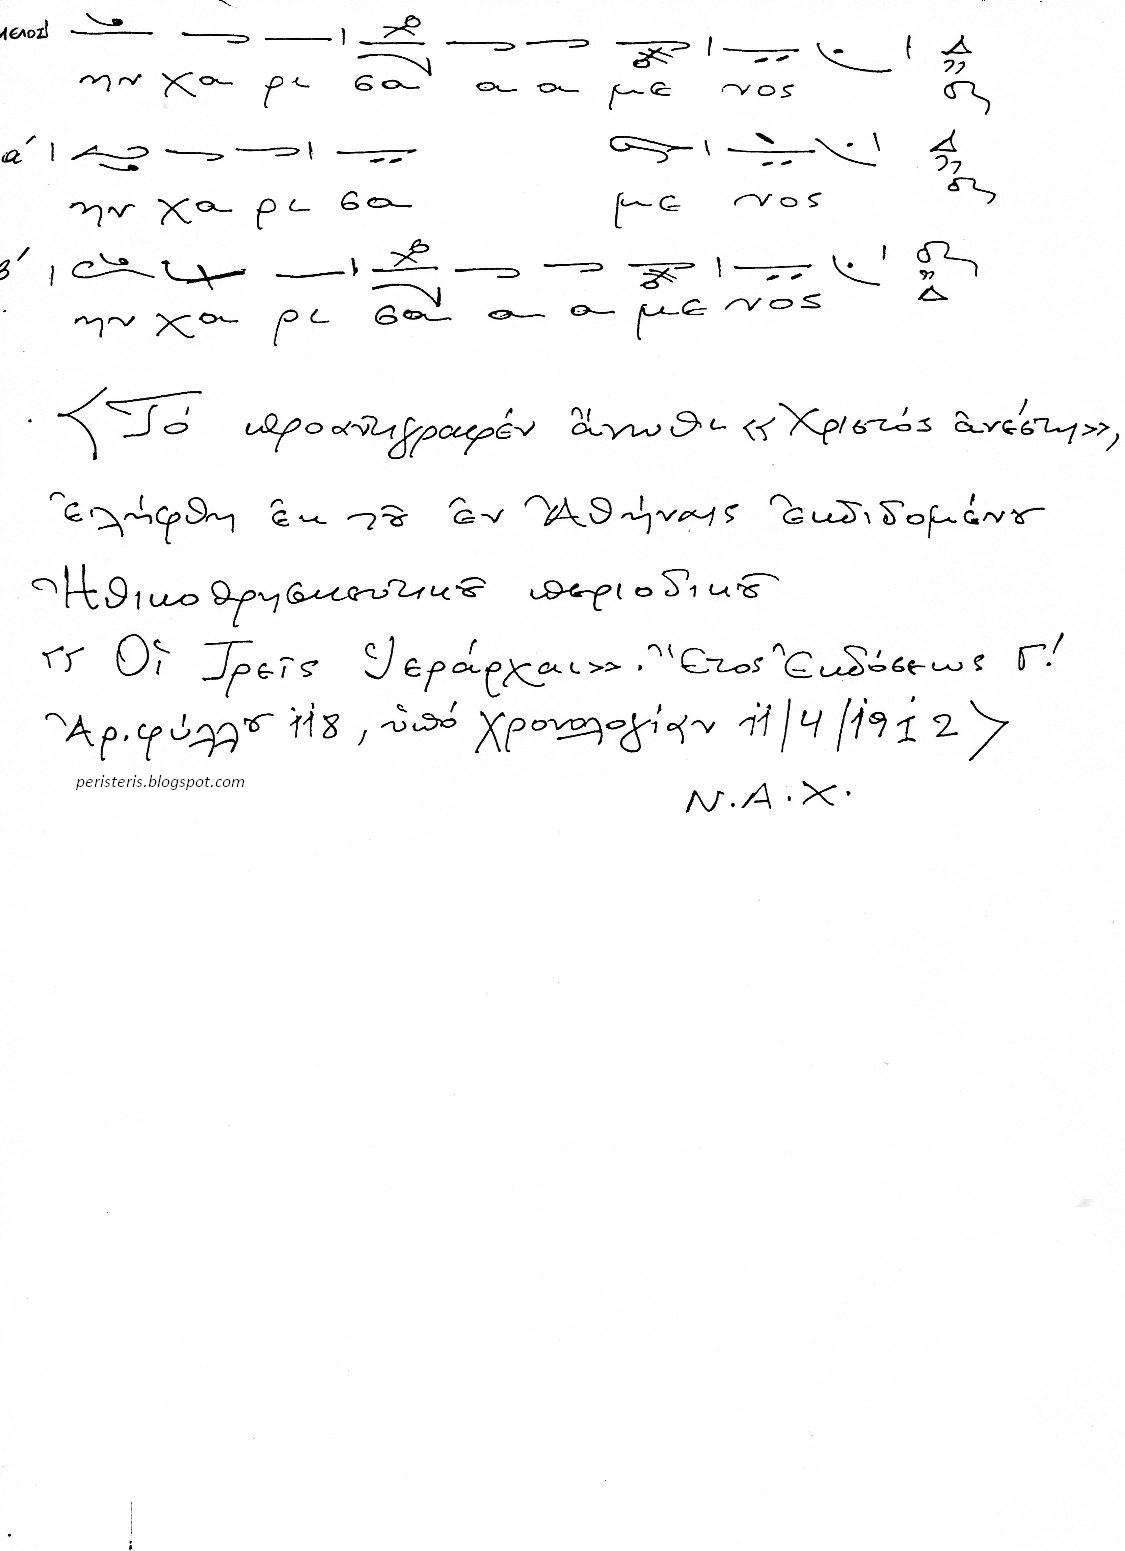 μελος
ην χα ρι σα α α με νος
α΄
ην χα ρι σα με νος
β΄
ην χα ρι σα α α με νος
<Τό προαντιγραφέν ἄνωθι «Χριστός ἀνέστη»,
ἐλήφθη ἐκ τȣ͂ ἐν Ἀθήναις ἐκδιδομένȣ
Ἠθικοθρησκευτικȣ͂ περιοδικȣ͂
«Οἱ Τρεῖς Ἱεράρχαι». Ἔτος Ἐκδόσεως Γ!
Ἀρ. φύλλȣ 118, ὑπό χρονολογίαν 11/4/1912>
peristeris.blogspot.com
Ν.Α.Χ.